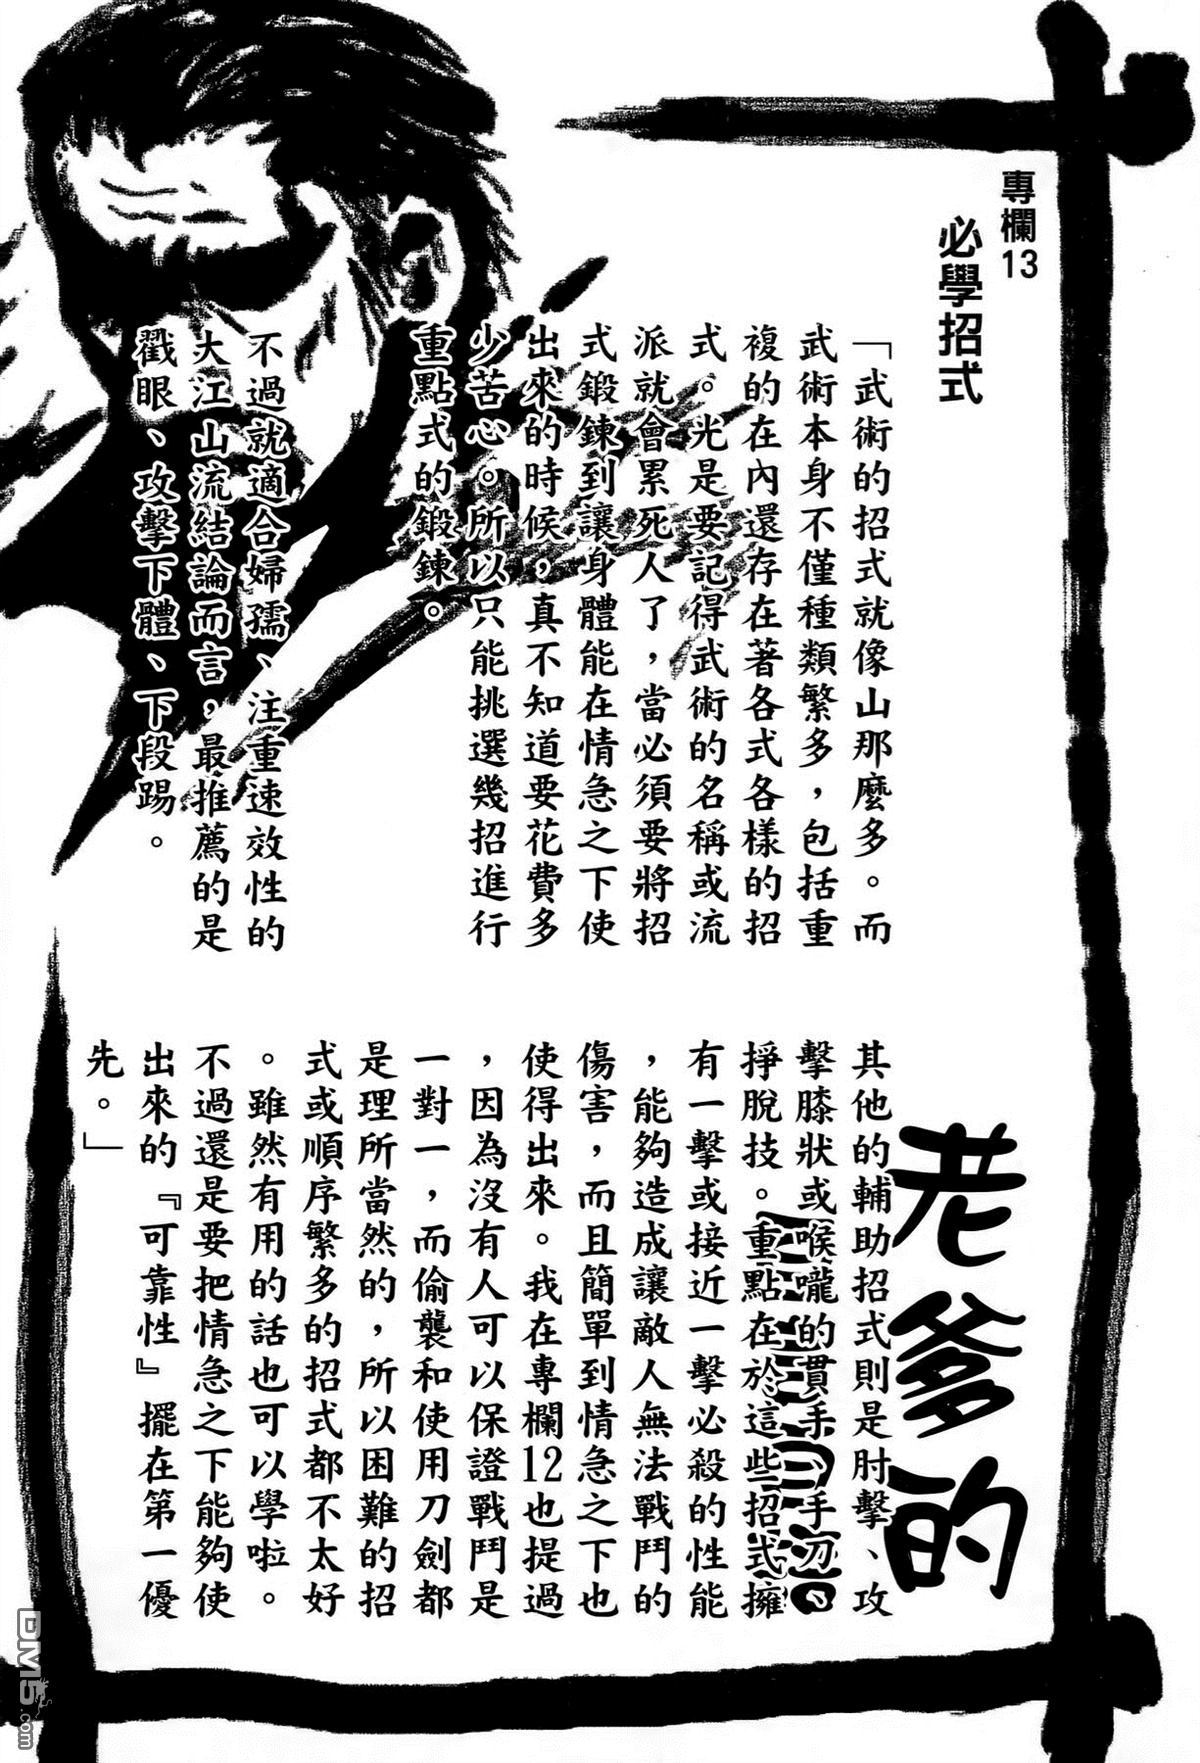 專欄13
必學招式
「武術的招式就像山那麼多。而
武術本身不僅種類繁多，包括重
複的在內還存在著各式各樣的招
式。光是要記得武術的名稱或流
派就會累死人了，當必須要將招
式鍛鍊到讓身體能在情急之下使
出來的時候，真不知道要花費多
少苦心。所以只能挑選幾招進行
重點式的鍛鍊。
不過就適合婦孺、注重速效性的
大江山流結論而言，最推薦的是
戳眼、攻擊下體、下段踢。
老爹的
其他的輔助招式則是肘擊、攻
擊膝狀或喉嚨的貫手、手刀、
掙脫技。重點在於這些招式擁
有一擊或接近一擊必殺的性能
，能夠造成讓敵人無法戰鬥的
傷害，而且簡單到情急之下也
使得出來。我在專欄12也提過
，因為沒有人可以保證戰鬥是
一對一，而偷襲和使用刀劍都
是理所當然的，所以困難的招
式或順序繁多的招式都不太好
。雖然有用的話也可以學啦。
不過還是要把情急之下能夠使
出來的『可靠性』擺在第一優
先。」
DM5.com